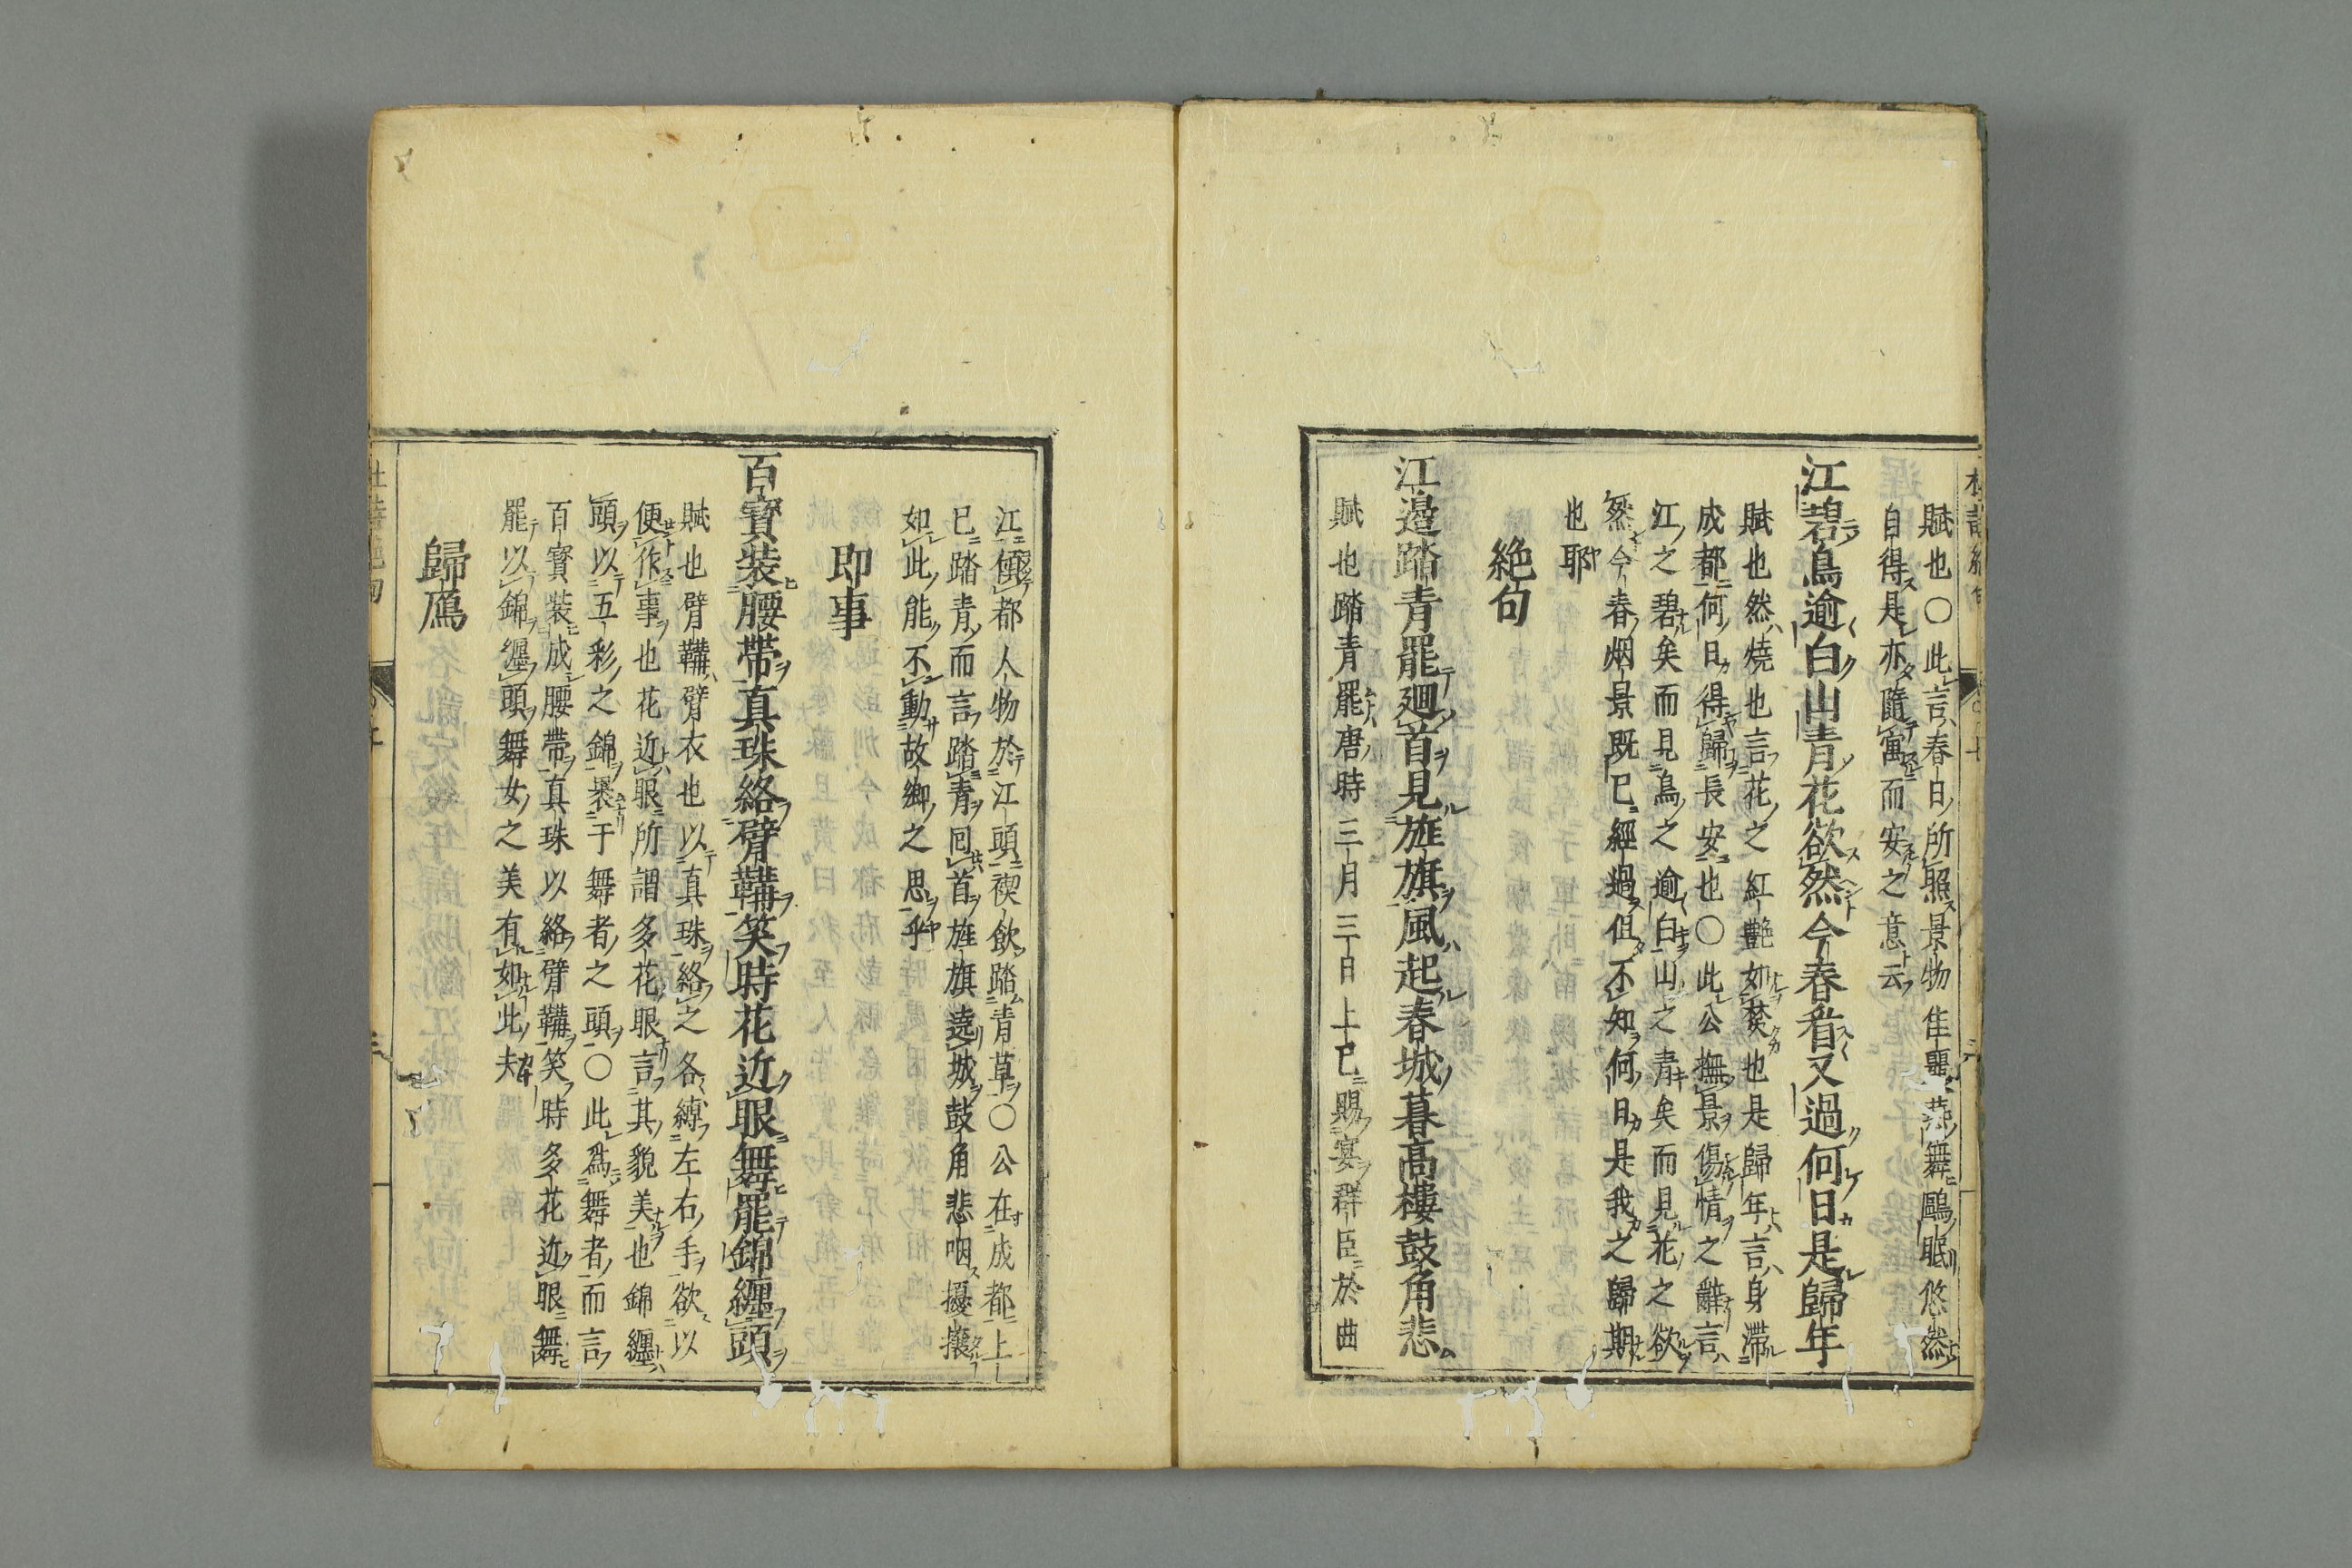 賦也〇此言春日所照景物佳麗燕舞鷗眠悠然
自得是亦隨寓而安之意云
江碧鳥逾白山青花欲然今春看又過何日是歸年
賦也然燒也言花之紅艷如焚也是歸年言身滯
成都何日得歸長安也〇此公撫景傷情之辭言
江之碧矣而見鳥之逾白山之青矣而見花之欲
然今春烟景既已經過但不知何日是我之歸期
也耶
絶句
江邉踏青罷廻首見旌旗風起春城暮高樓鼓角悲
賦也踏青罷唐時三月三日上巳賜宴群臣於曲
江傾都人物於江頭禊飲踏青草〇公在成都上
巳踏青而言踏青囘首旌旗遶城鼓角悲咽擾攘
如此能不動故鄉之思乎
即事
百寳裝腰帶真珠絡臂鞲笑時花近眼舞罷錦纏頭
賦也臂鞲臂衣也以真珠絡之各縛左右手欲以
便作事也花近眼所謂多花眼言其貌美也錦纒
頭以五彩之錦褁于舞者之頭〇此為舞者而言
百寳裝成腰帶真珠以絡臂鞲笑時多花近眼舞
罷以錦纒頭舞女之美有如此夫
歸鴈